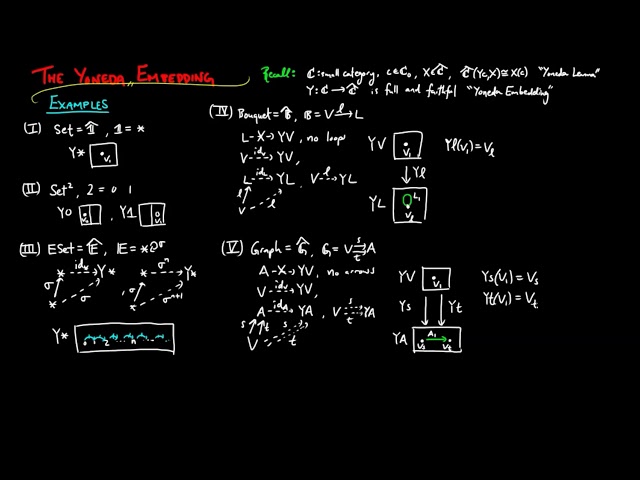 THE YONEDA EMBEDDING
Recall: ℂ: small category, c∈ℂ₀, X∈ℂ̂, ℂ̂(Yc,X)≅X(c) "Yoneda Lemma"
Y: ℂ → ℂ̂ is full and faithful "Yoneda Embedding"
EXAMPLES
(I) Set = 𝟙̂, 𝟙 = *
Y* •v₁
(II) Set², 2 = 0 1
Y0, Y1
(III) ESet = Ê, E = * ↺σ
* id* ⇢ Y*
σ σ
* σⁿ ⇢ Y*
σ σⁿ⁺¹
Y* 0 1 2 ... n ...
(IV) Bouquet = 𝔹̂, 𝔹 = V –l→ L
L –X→ YV, no loop
V –idv⇢ YV,
L –idL⇢ YL, V –l⇢ YL
l l
V
YV •v₁ Yl(v₁) = vₗ
↓ Yl
YL L₁ vₗ
(V) Graph = 𝔾̂, 𝔾 = V s⇉t A
A –X→ YV, no arrows
V –idv⇢ YV,
A –idA⇢ YA, V s⇉t YA
s t s t
V
YV •v₁ Ys(v₁) = vₛ
Ys Yt Yt(v₁) = vₜ
YA vₛ A₁ vₜ